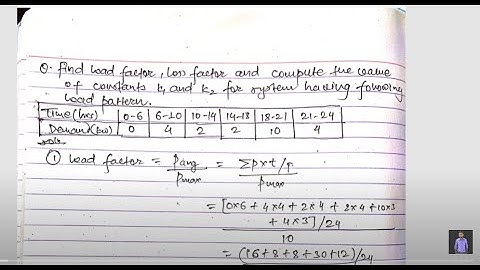 Q. Find load factor, loss factor and compute the value
of constants k1 and k2 for system having following
load pattern.
Time (hrs) 0-6 6-10 10-14 14-18 18-21 21-24
Demand (kw) 0 4 2 2 10 4
① Load factor = Pavg/Pmax = ΣP×t/T / Pmax
= [0×6 + 4×4 + 2×4 + 2×4 + 10×3
+ 4×3]/24
10
= (16+8+8+30+12)/24